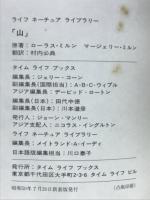 ライフ ネーチュア ライブラリー
「山」
原著：ローラス・ミルン　マージェリー・ミルン
翻訳：村内公典
タイム ライフ ブックス
編集長：ジェリー・コーン
副編集長(国際担当)：A・B・C・ウィプル
アジア編集長：デービッド・ロートン
編集長(日本)：田代申徳
副編集長(日本)：川本達彦
発行人：ジョーン・マンリー
アジア支配人：ニコラス・イングルトン
ライフ ネーチュア ライブラリー
編集長：メイトランド・A・イーディ
日本語版編集担当：川口善平
発行所：タイム ライフ ブックス
東京都千代田区大手町2-3-6 タイム ライフ ビル
昭和50年7月20日新装版発行